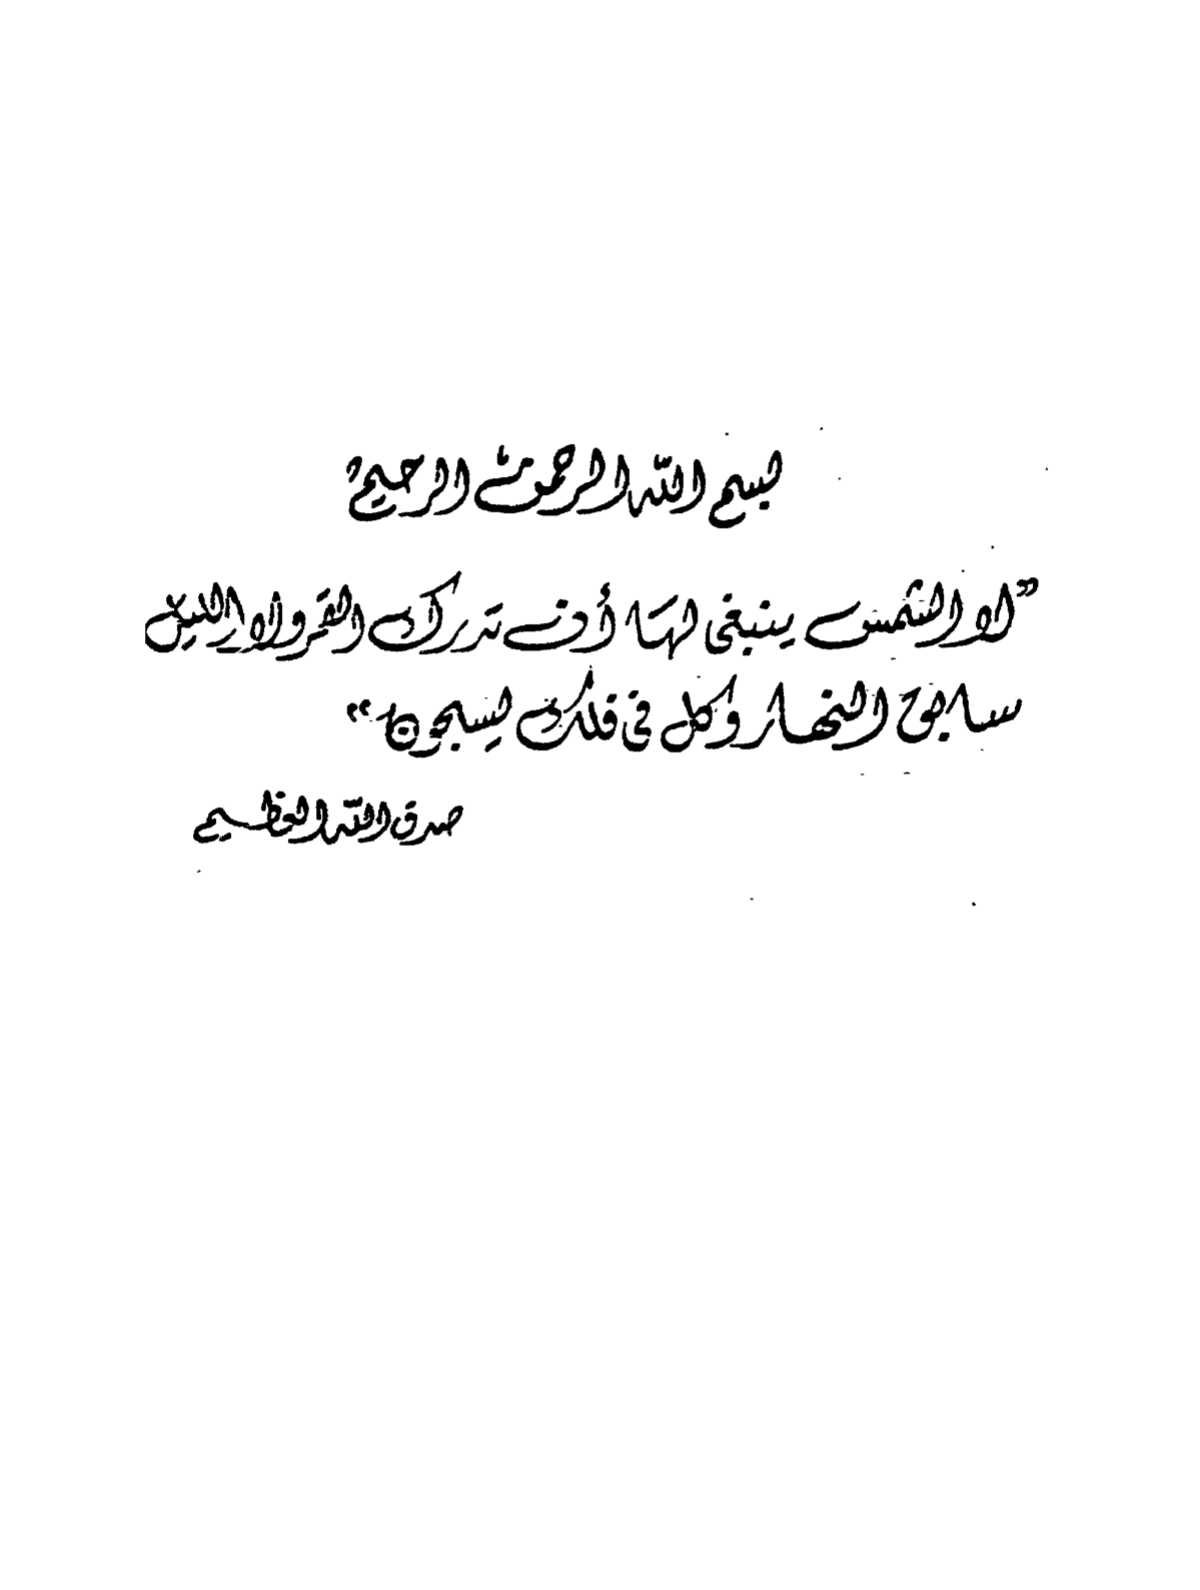 بسم الله الرحمن الرحيم
"لا الشمس ينبغى لها أن تدرك القمر ولا الليل
سابق النهار وكل فى فلك يسبحون"
صدق الله العظيم